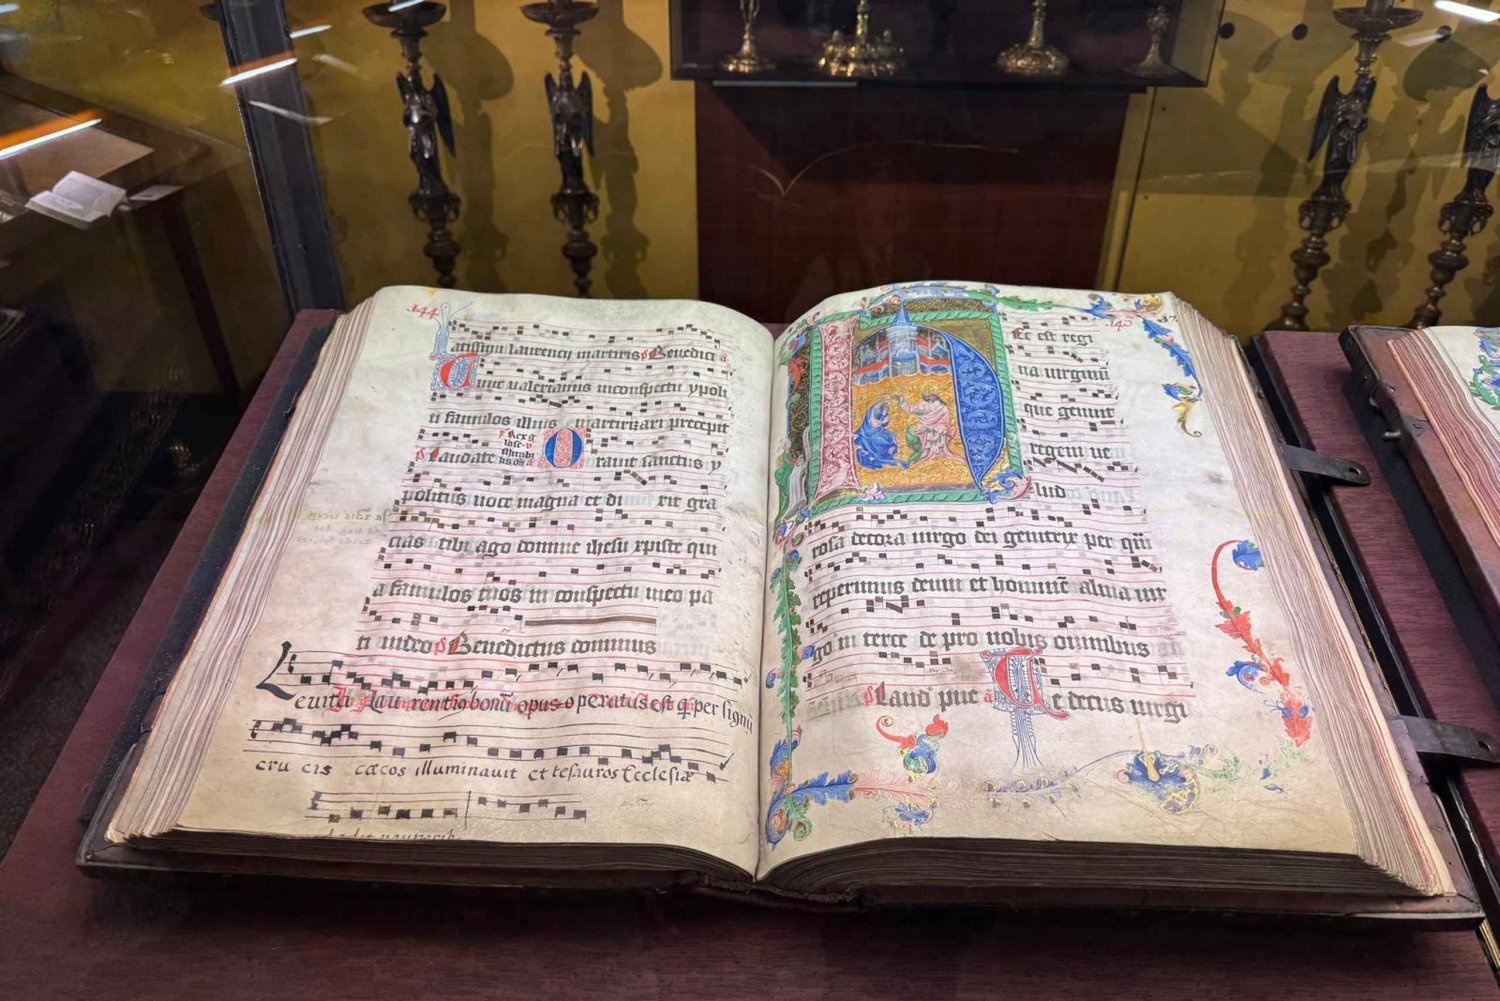 .144.
atissimi laurencij martiris p Benedici a
Tunc valerianus in conspectu ypoli
ti famulos illius martirizari precepit
p Laudate Oravit sanctus y
politus voce magna et dixit gra
cias tibi ago domine ihesu xpiste qui
a famulos tuos in conspectu meo pa
ti video p Benedictus dominus
Levita Laurentius bonū opus operatus est q per signū
crucis cæcos illuminavit et tesauros Ecclesiæ
.145.
Ec est regi
na virginū
que genuit
regem
rosa decora virgo dei genitrix per quā
reperimus deum et hominē alma vir
go in terce de pro nobis omnibus
p Laud pue a Te decus virgi